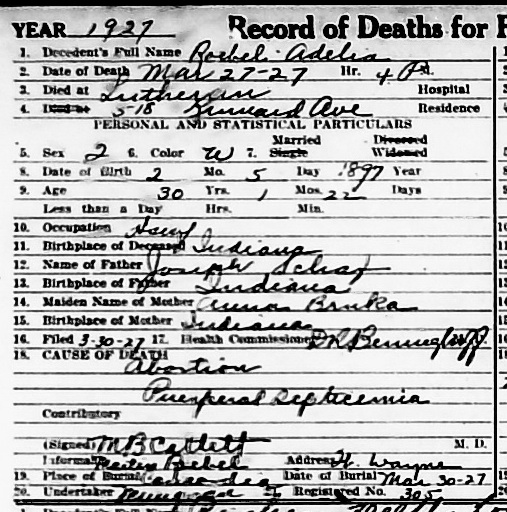 YEAR 1927 Record of Deaths for F
1. Decedent's Full Name Roebel Adelia
2. Date of Death Mar 27-27 Hr. 4 P M.
3. Died at Lutheran Hospital
4. Died at 518 Ave Residence
PERSONAL AND STATISTICAL PARTICULARS
Married Divorced
5. Sex 2 6. Color W 7. Single Widowed
8. Date of Birth 2 Mo. 5 Day 1897 Year
9. Age 30 Yrs. 1 Mos. 22 Days
Less than a Day Hrs. Min.
10. Occupation Hswf
11. Birthplace of Deceased Indiana
12. Name of Father Joseph Schaf
13. Birthplace of Father Indiana
14. Maiden Name of Mother Anna Bruka
15. Birthplace of Mother Indiana
16. Filed 3-30-27 17. Health Commissioner
18. CAUSE OF DEATH
Abortion
Puerperal Septicemia
Contributory
(Signed) M B Catlett M. D.
Informant Roebel Address Ft. Wayne
19. Place of Burial Date of Burial Mar 30-27
20. Undertaker Registered No. 305